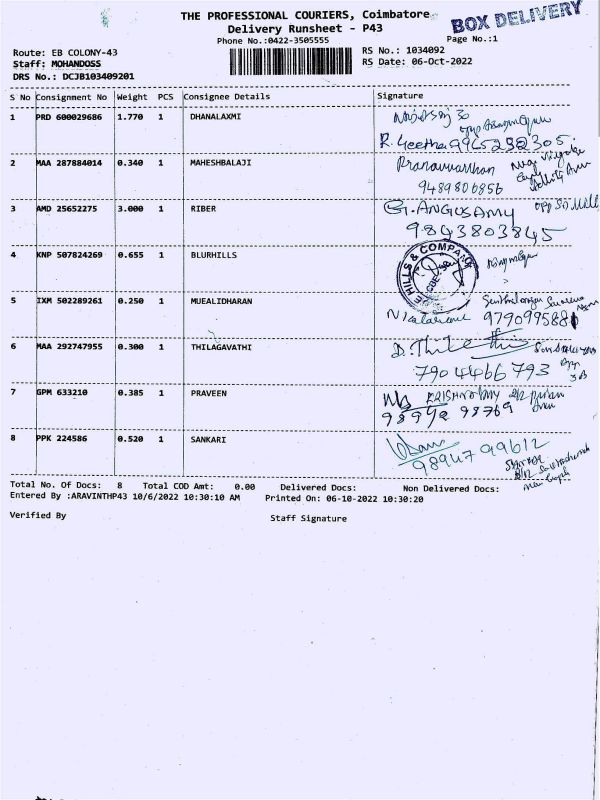 THE PROFESSIONAL COURIERS, Coimbatore
BOX DELIVERY
Delivery Runsheet - P43
Phone No.:0422-3505555
Page No.:1
Route: EB COLONY-43
RS No.: 1034092
Staff: MOHANDOSS
RS Date: 06-Oct-2022
DRS No.: DCJB103409201
S No Consignment No Weight PCS Consignee Details Signature
1 PRD 600029686 1.770 1 DHANALAXMI
R. Geetha 9965252305
2 MAA 287884014 0.340 1 MAHESHBALAJI
9489806856
3 AMD 25652275 3.000 1 RIBER
G. ANGUSAMY
9843803845
4 KNP 507824269 0.655 1 BLURHILLS
HILLS & COMPANY
5 IXM 502289261 0.250 1 MUEALIDHARAN
9790995881
6 MAA 292747955 0.300 1 THILAGAVATHI
D. Thile
7904466793
7 GPM 633210 0.385 1 PRAVEEN
98769
8 PPK 224586 0.520 1 SANKARI
98947 99612
Total No. Of Docs: 8 Total COD Amt: 0.00 Delivered Docs: Non Delivered Docs:
Entered By :ARAVINTHP43 10/6/2022 10:30:10 AM Printed On: 06-10-2022 10:30:20
Verified By Staff Signature